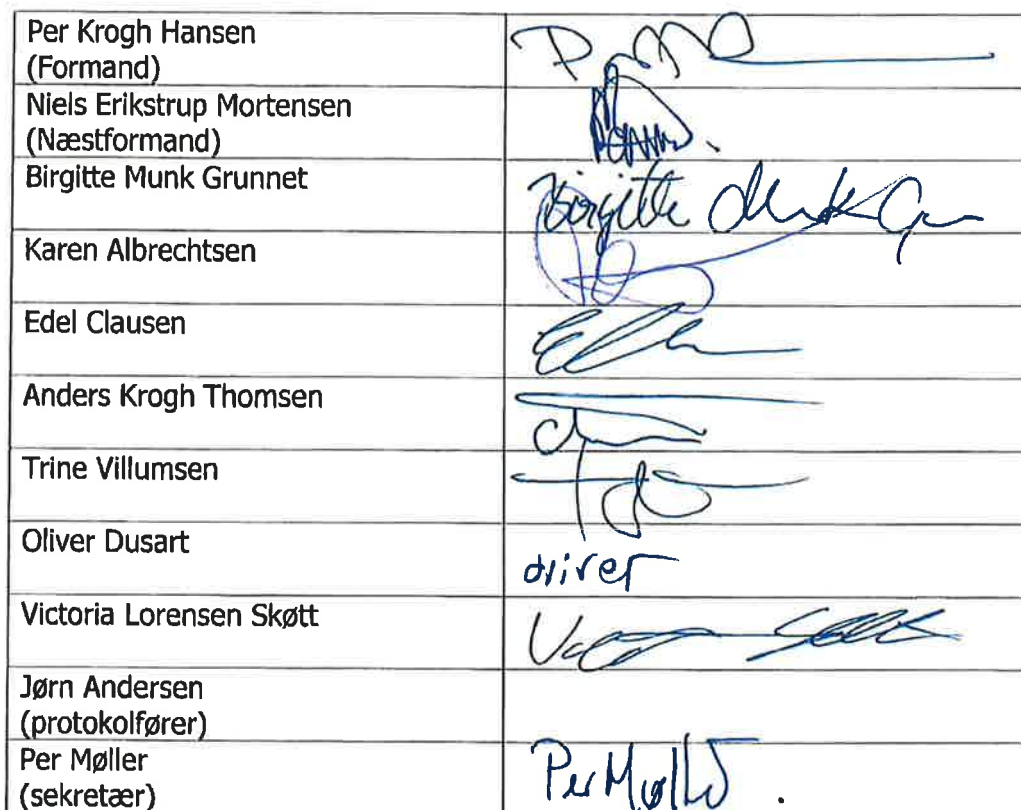 Per Krogh Hansen
(Formand)
Niels Erikstrup Mortensen
(Næstformand)
Birgitte Munk Grunnet
Birgitte Munk
Karen Albrechtsen
Edel Clausen
Anders Krogh Thomsen
Trine Villumsen
Oliver Dusart
Victoria Lorensen Skøtt
Jørn Andersen
(protokolfører)
Per Møller
(sekretær)
Per Møller